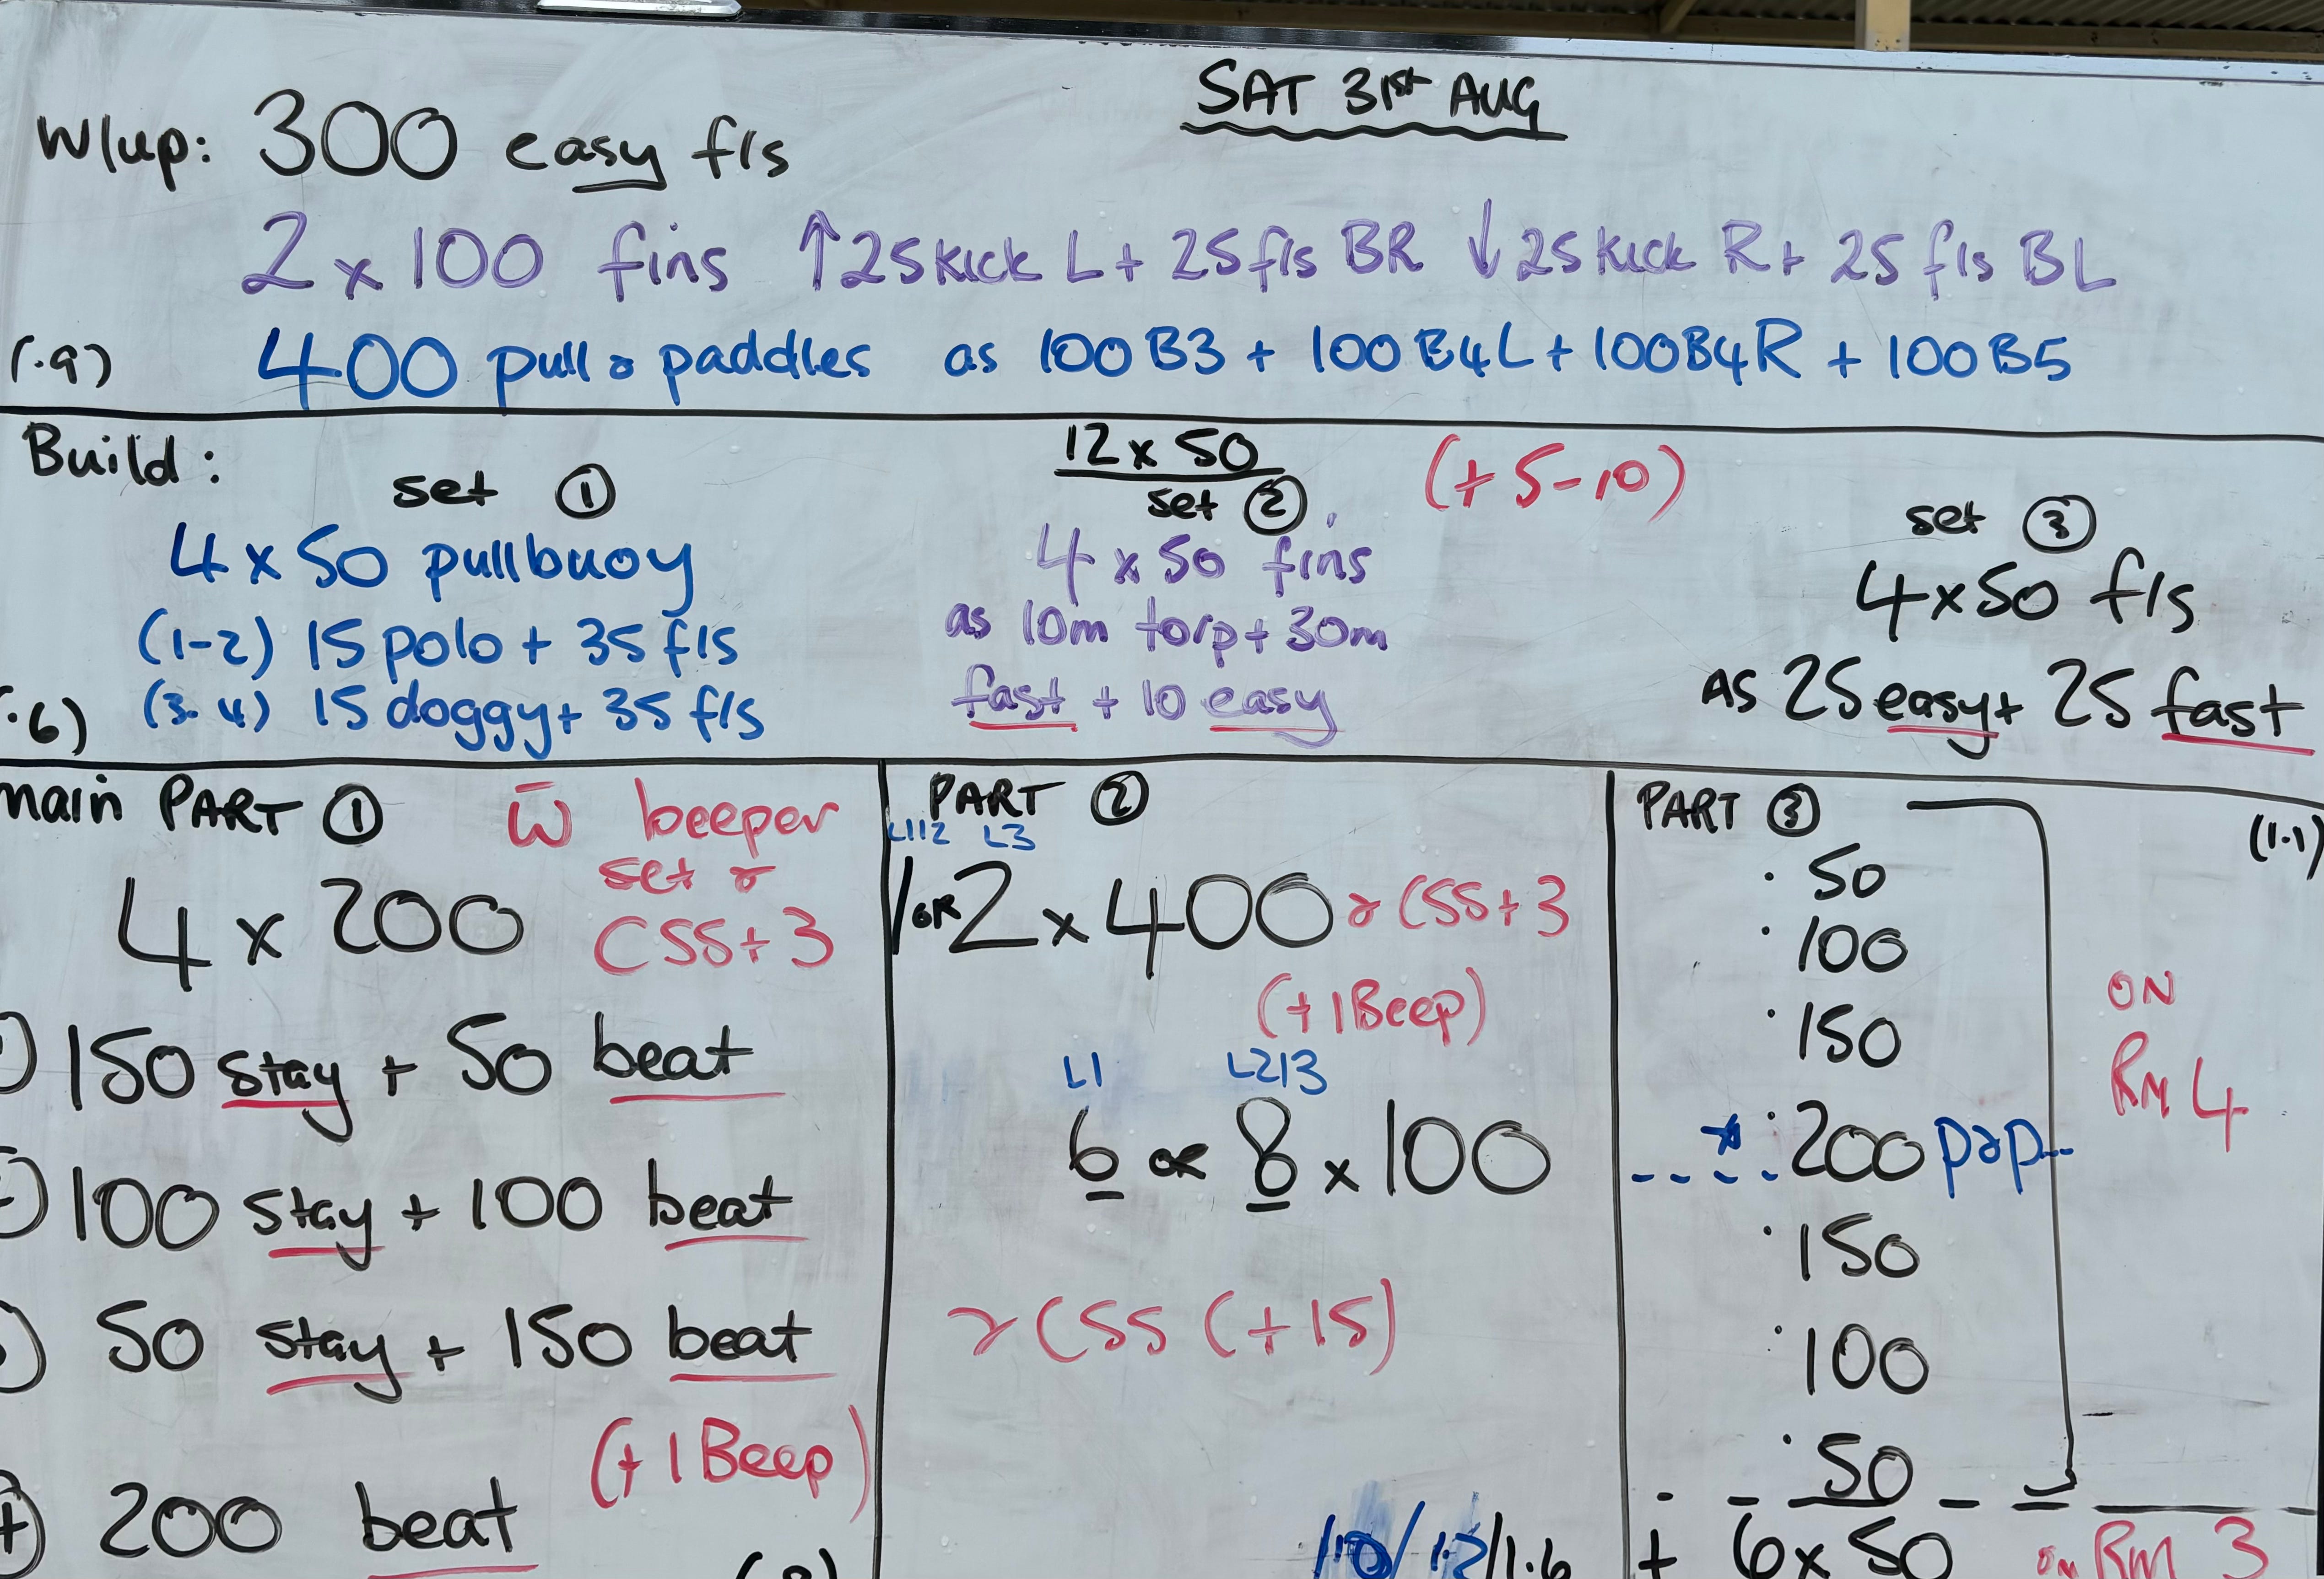 SAT 31st AUG
W/up: 300 easy f/s
2 x 100 fins ↑25 kick L + 25 f/s BR ↓25 kick R + 25 f/s BL
(.9) 400 pull & paddles as 100 B3 + 100 B4L + 100 B4R + 100 B5
Build:
12 x 50 (+5-10)
set ①
4 x 50 pullbuoy
(1-2) 15 polo + 35 f/s
(3-4) 15 doggy + 35 f/s
.6)
set ②
4 x 50 fins
as 10m torp + 30m
fast + 10 easy
set ③
4 x 50 f/s
AS 25 easy + 25 fast
main PART ①
w̄ beeper
set @
CSS+3
4 x 200
150 stay + 50 beat
100 stay + 100 beat
50 stay + 150 beat
(+1Beep)
200 beat
PART ②
L1/2 L3
1 OR 2 x 400 @ CSS+3
(+1Beep)
L1 L2/3
6 OR 8 x 100
@ CSS (+15)
1.2/1.6
PART ③
(1.1)
50
100
150
* 200 p&p
150
100
50
ON
RM 4
+ 6x50 on RM 3